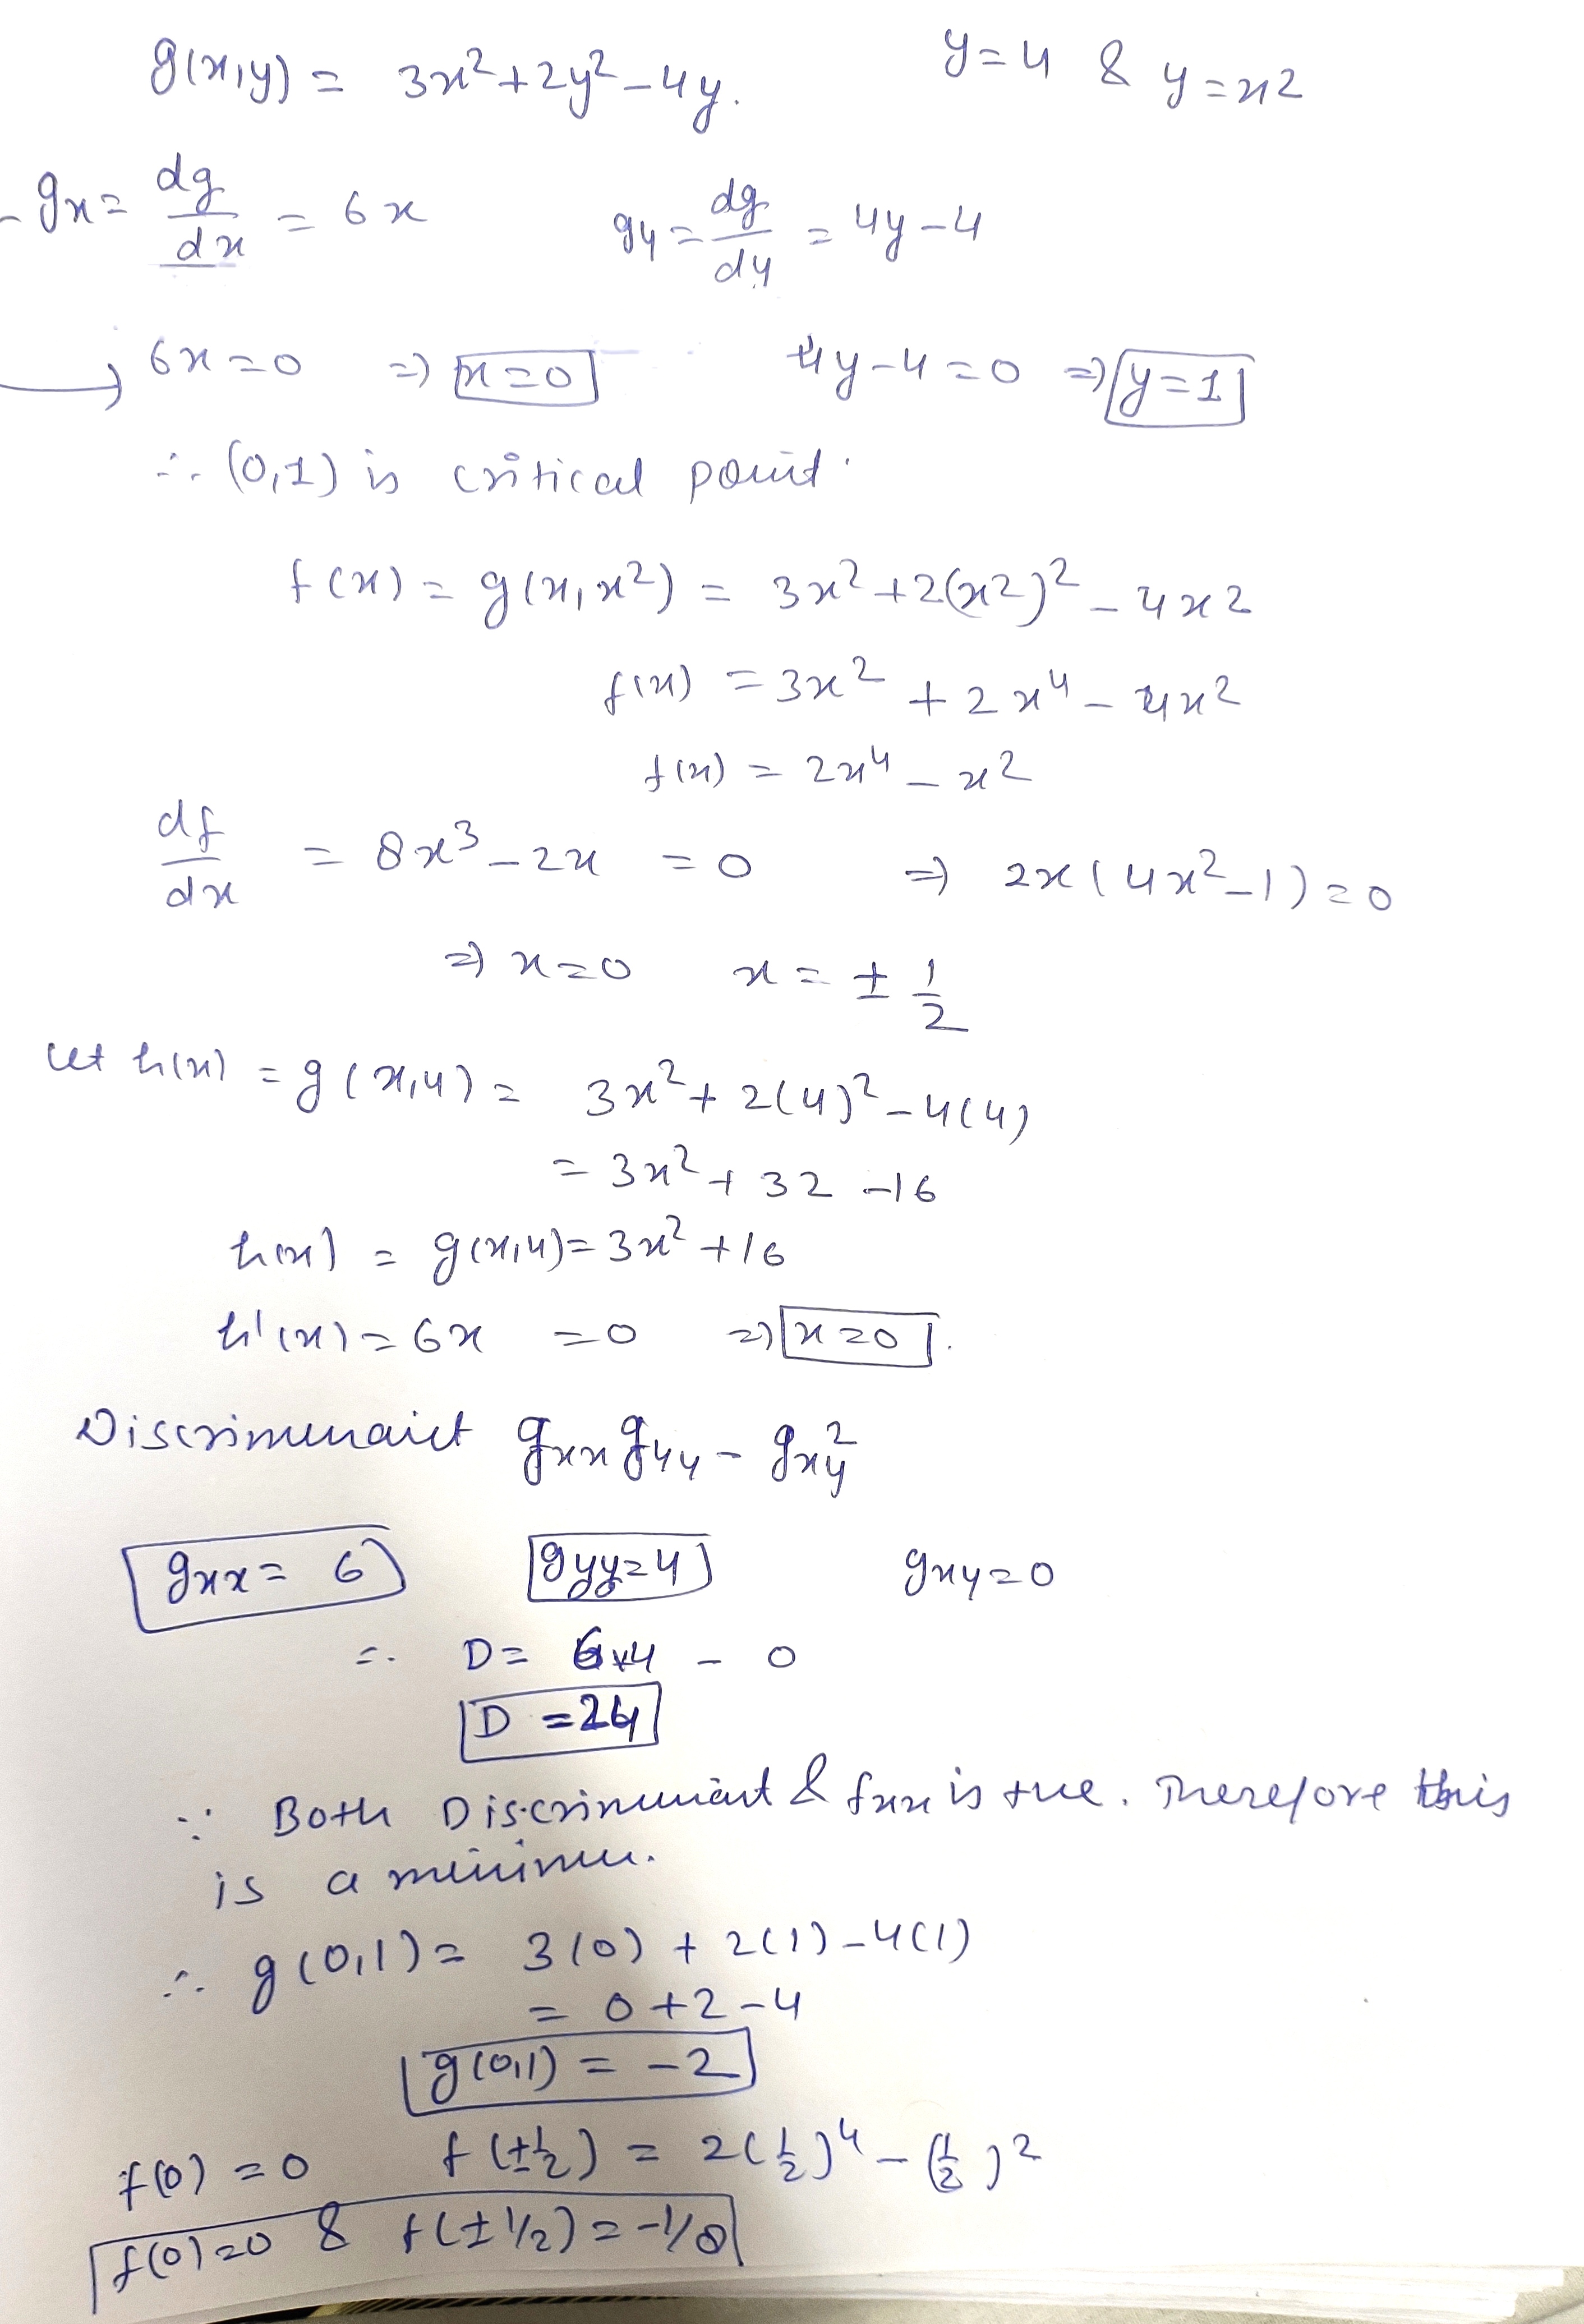 g(x,y) = 3x²+2y²-4y. y=4 & y=x2
- gx = dg/dx = 6x gy = dg/dy = 4y-4
→ 6x=0 => x=0 4y-4=0 => y=1
∴ (0,1) is critical point.
f(x) = g(x,x²) = 3x²+2(x2)²-4x2
f(x) = 3x²+2x⁴-4x²
f(x) = 2x⁴-x²
df/dx = 8x³-2x =0 => 2x(4x²-1)=0
=> x=0 x = ± 1/2
let h(x) = g(x,4) = 3x²+2(4)²-4(4)
= 3x²+32-16
h(x) = g(x,4)=3x²+16
h'(x)=6x =0 => x=0.
Discriminant gxx gyy - gxy²
gxx= 6 gyy=4 gxy=0
∴ D= 6x4 - 0
D =24
∵ Both Discriminant & fxx is +ve. Therefore this
is a minima.
∴ g(0,1)= 3(0) + 2(1)-4(1)
= 0+2-4
g(0,1) = -2
f(0) =0 f(±1/2) = 2(1/2)⁴-(1/2)²
f(0)=0 & f(±1/2)=-1/8